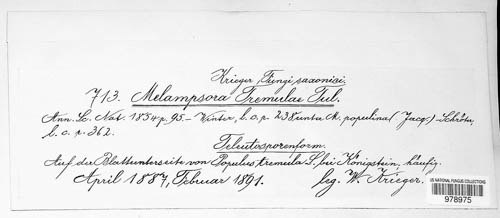 Krieger, Fungi saxonici.
713. Melampsora Tremulae Tul.
Ann. Sc. Nat. 1854 p. 95. – Winter, l. c. p. 238 unter M. populina (Jacq.) – Schröter,
l. c. p. 362.
Teleutosporenform.
Auf der Blattunterseite von Populus tremula L. bei Königstein, häufig.
April 1887, Februar 1891. leg. W. Krieger.
US NATIONAL FUNGUS COLLECTIONS
978975